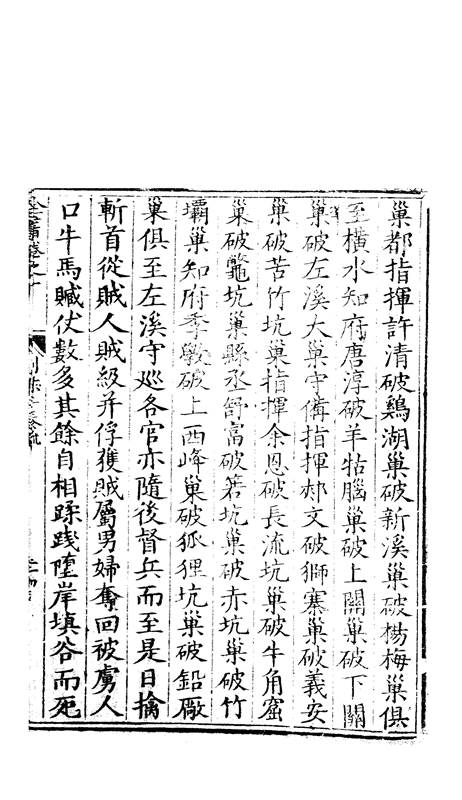 巢都指揮許清破鷄湖巢破新溪巢破楊梅巢俱
至橫水知府唐淳破羊牯腦巢破上關巢破下關
巢破左溪大巢守備指揮郟文破獅寨巢破義安
巢破苦竹坑巢指揮余恩破長流坑巢破牛角窟
巢破鼈坑巢縣丞舒富破箬坑巢破赤坑巢破竹
壩巢知府季斆破上西峰巢破狐狸坑巢破鉛厰
巢俱至左溪守廵各官亦隨後督兵而至是日擒
斬首從賊人賊級并俘獲賊屬男婦奪回被虜人
口牛馬贓仗數多其餘自相蹂踐墮岸填谷而死